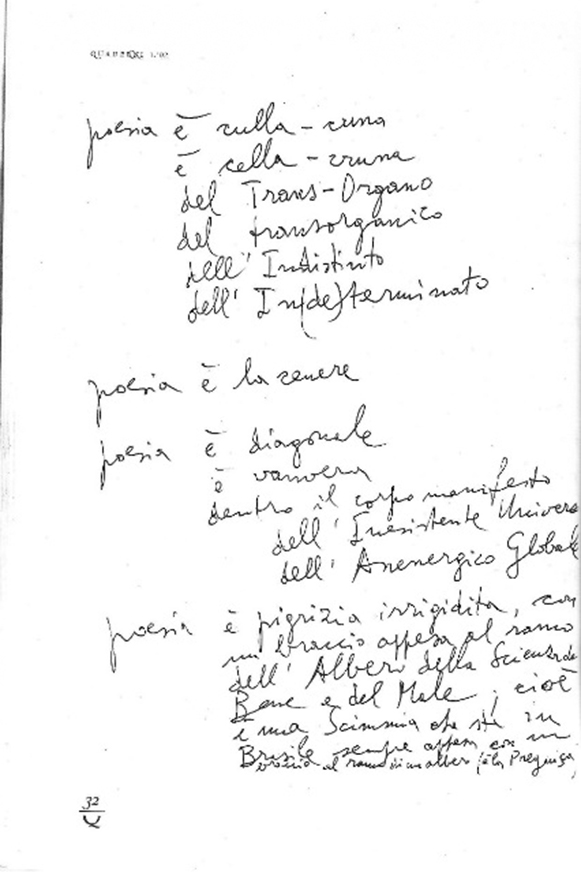 QUADERNO
poesia è culla-cruna
è cella-cruna
del Trans-Organo
del transorganico
dell'Indistinto
dell'In(de)terminato
poesia è la cenere
poesia è diagonale
è vanvera
dentro il corpo manifesto
dell'Inesistente Univers
dell'Anenergico Globale
poesia è pigrizia irrigidita, con
un braccio appesa al ramo
dell'Albero della Scienza de
Bene e del Male, cioè
è una Scimmia che sta in
Brasile sempre appesa con un
braccio al ramo di un albero (è la Preguiça,
32